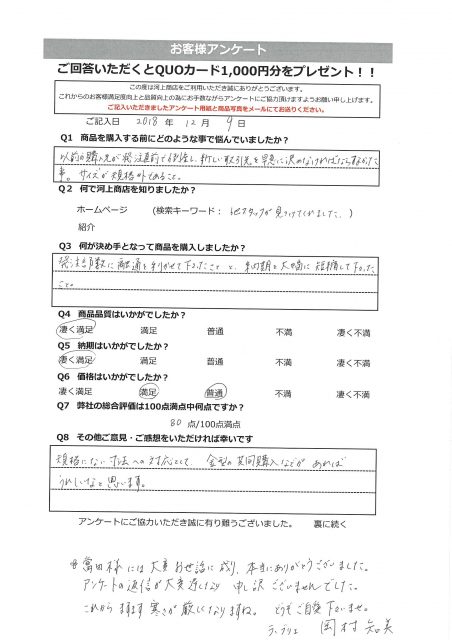 お客様アンケート
ご回答いただくとQUOカード1,000円分をプレゼント！！
この度は河上商店をご利用いただき誠にありがとうございます。
これからのお客様満足度向上と品質向上の為にお手数ながらアンケートにご協力頂けますようお願い申し上げます。
ご記入いただきましたアンケート用紙と商品写真をメールにてお送りください。
ご記入日 2018 年 12 月 9 日
Q1 商品を購入する前にどのような事で悩んでいましたか？
以前の購入先が発注直前で 新しい取引先を早急に決めなければならなかった
事。サイズが規格外であること。
Q2 何で河上商店を知りましたか？
ホームページ （検索キーワード： 他スタッフが見つけてくれました。）
紹介
Q3 何が決め手となって商品を購入しましたか？
発注点数に融通を利かせて下さったこと と、納期を大幅に短縮して下さった
こと。
Q4 商品品質はいかがでしたか？
凄く満足 満足 普通 不満 凄く不満
Q5 納期はいかがでしたか？
凄く満足 満足 普通 不満 凄く不満
Q6 価格はいかがでしたか？
凄く満足 満足 普通 不満 凄く不満
Q7 弊社の総合評価は100点満点中何点ですか？
80 点/100点満点
Q8 その他ご意見・ご感想をいただければ幸いです
規格にない寸法への対応として、金型の共同購入などがあれば
うれしいなと思います。
アンケートにご協力いただき誠に有り難うございました。 裏に続く
富田様には大変お世話に成り、本当にありがとうございました。
アンケートの返信が大変遅くなり 申し訳ございませんでした。
これから ますます 寒さが厳しくなりますね。 どうぞご自愛下さいませ。
岡村 知美